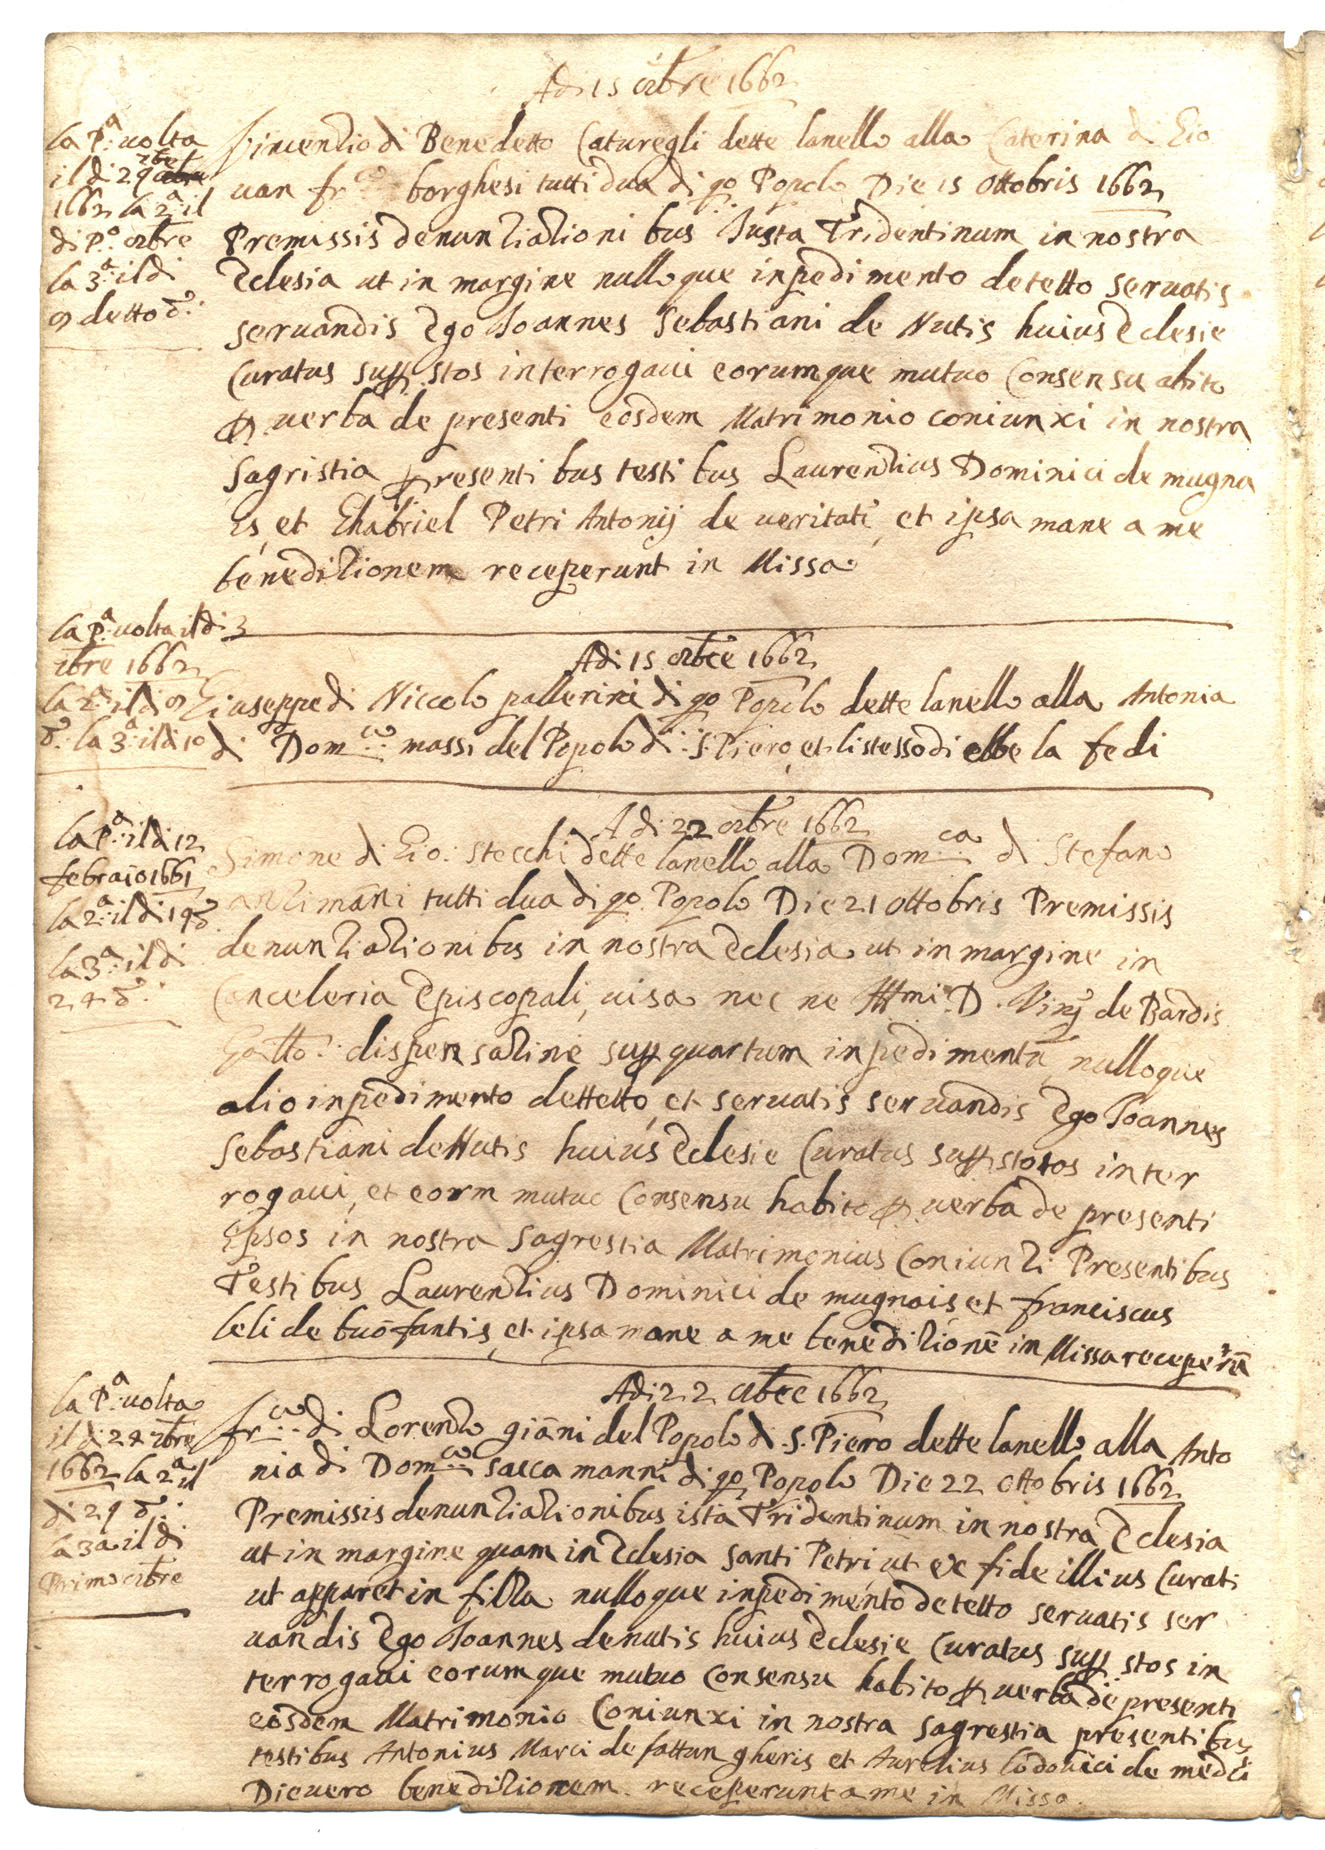 Adi 15 8bre 1662
la Pa: uolta
il di 29 7bre
1662 la 2a: il
di Po: 8bre
la 3a: il di
9 detto d.
Vincenzio di Benedetto Caturegli dette lanello alla Caterina di Gio
uan frco borghesi tutti dua di qo Popolo Die 15 Ottobris 1662
Premissis denuntiationi bus Iusta Tridentinum in nostra
Eclesia ut in margine nulloque inpedimento detetto seruatis
seruandis Ego Ioannes Sebastiani de Nutis huius Eclesie
Curatus supp.stos interrogaui eorumque mutuo Consensu abito
p. uerba de presenti eosdem Matrimonio coniunxi in nostra
Sagristia presenti bus testi bus Laurentius Dominici de mugna
is, et Ghabriel Petri Antonij de ueritati, et ipsa mane a me
beneditionem receperunt in Missa
la Pa: uolta il di 3
8bre 1662
la 2a: il di 9
d. la 3a: il di 10
Adi 15 8bre 1662
Giuseppe di Niccolo pallerini di qo Popolo dette lanello alla Antonia
di Domco: massi del Popolo di S. Piero, et listesso di ebbe la fedi
la Pa: il di 12
febraio 1661
la 2a: il di 19 d.
la 3a: il di
24 d.
Adi 22 8bre 1662
Simone di Gio: stecchi dette lanello alla Domca di Stefano
anzimani tutti dua di qo Popolo Die 21 Ottobris Premissis
denuntiationibus in nostra Eclesia ut in margine in
Canceleria Episcopali, uisa nec ne Illmi D. Vinj de Bardis
dispensatine supp quartum inpedimentū nulloque
alio inpedimento dettetto, et seruatis seruandis Ego Ioannes
Sebastiani de Nutis huius Eclesie Curatus suppstotos inter
rogaui, et eorm mutuo Consensu habito p. uerba de presenti
Epsos in nostra Sagrestia Matrimonius Coniunti Presentibus
Testibus Laurentius Dominici de mugnais, et franciscus
leli de buōfantis, et ipsa mane a me beneditionē in Missa receperūt
la Pa: uolta
il di 24 7bre
1662 la 2a il
di 29 d.:
la 3a il di
Primo 8bre
Adi 22 8bre 1662
frco: di Lorenzo giāni del Popolo di S. Piero dette lanello alla Anto
nia di Domco: sacca manni di qo Popolo Die 22 Ottobris 1662
Premissis denuntiationibus ista Tridentinum in nostra Eclesia
ut in margine quam in Eclesia Santi Petri ut ex fide illius Curati
ut apparet in filza nulloque inpedimento detetto seruatis ser
uandis Ego Ioannes denutis huius Eclesie Curatus supp.stos in
terrogaui eorumque mutuo Consensu habito p. uerba de presenti
eosdem Matrimonio Coniunxi in nostra Sagrestia presentibus
testibus Antonius Marci de fattun gheris et Aurelius lodouici de medci
Die uero beneditionem receperunt a me in Missa.